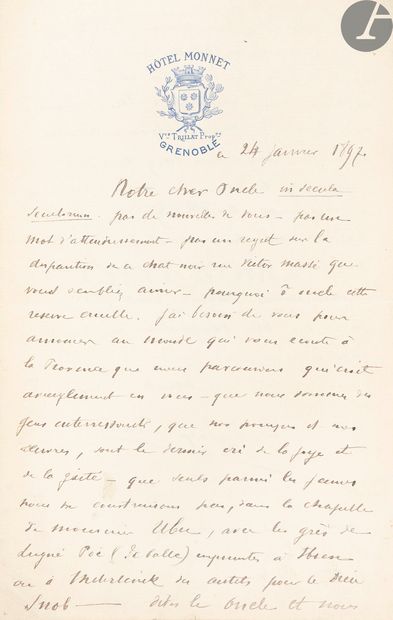 HÔTEL MONNET
Vve TRILLAT Propre
GRENOBLE
le 24 Janvier 1897
Notre cher Oncle in secula
seculorum. pas de nouvelles de vous – pas un
mot d'attendrissement – pas un regret sur la
disparition de ce chat noir rue Victor Massé que
vous sembliez aimer – pourquoi ô oncle cette
reserve cruelle. J'ai besoin de vous pour
annoncer au monde qui vous ecoute à
la Provence que nous parcourons qui croit
aveuglement en vous – que nous sommes des
gens interressants, que nos et nos
œuvres, sont le dernier cri de la joye et
de la gaité – que seuls parmi les jeunes
nous ne construisons pas, dans la chapelle
de monsieur Ubu, avec les grès de
Lugné Poë ( ) empruntés à Ibsen
ou à Maeterlinck des autels pour le Dieu
Snob — dites le Oncle et nous